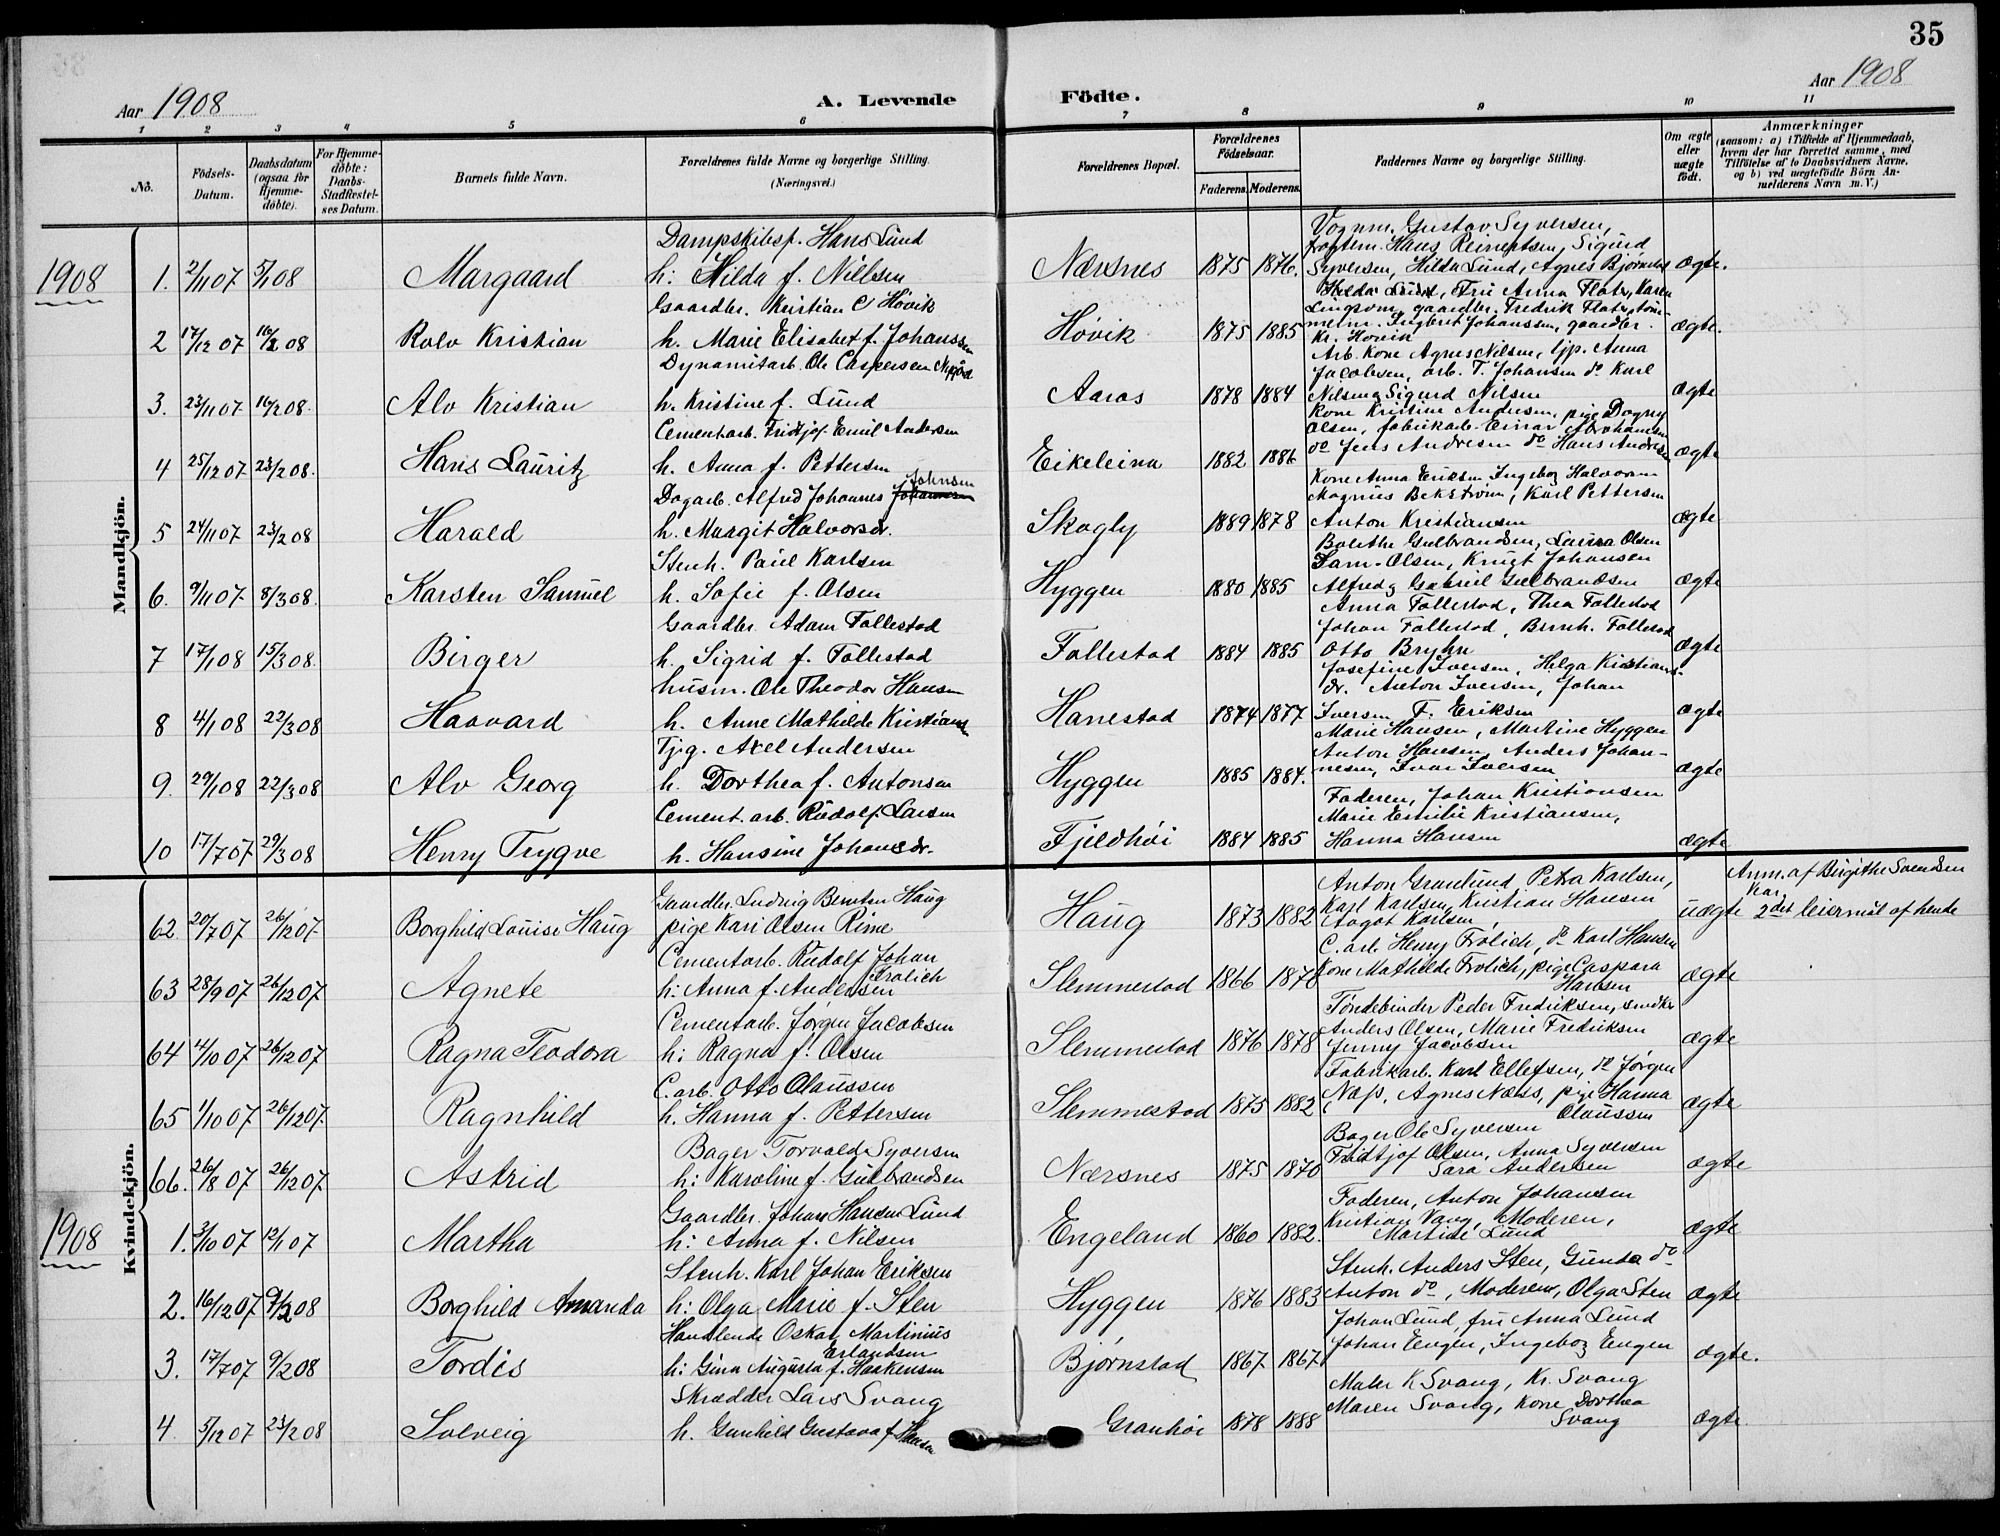 35
Aar 1908
A. Levende Födte.
Aar 1908
1 2 3 4 5 6 7 8 9 10 11
No.
Födsels-Datum.
Daabsdatum (ogsaa för Hjemme-döbte).
For Hjemme-döbte: Daabs-Stadfæstel-ses Datum.
Barnets fulde Navn.
Forældrenes fulde Navne og borgerlige Stilling.
(Næringsvei.)
Forældrenes Bopæl.
Forældrenes Födselsaar.
Faderens. Moderens.
Faddernes Navne og borgerlige Stilling.
Om ægte eller uægte födt.
Anmærkninger
(saasom: a) i Tilfælde af Hjemmedaab, hvem der har forrettet samme, med Tilföielse af to Daabsvidners Navne, og b) ved uægtefödte Börn An-melderens Navn m. V.)
Mandkjön.
1908
1. 2/11 07 5/1 08 Margaard
Dampskibesp. Hans Lund
h: Hilda f. Nielsen
Nærsnes 1875 1876.
Vognm. Gustav Syversen,
Hans Reinertsen, Sigurd
Syversen, Hilda Lund, Agnes
ægte.
2 17/12 07 16/2 08 Rolv Kristian
Gaardbr. Kristian C Høvik
h. Marie Elisabet f. Johanssen
Høvik 1875 1885
Hilda Lund, Fru Anna Flate, Karen
gaardbr. Fredrik Flate, tøm-
merm. Ingbret Johanssen, gaardbr.
Kr. Høvik
ægte.
3. 23/11 07 16/2 08. Alv Kristian
Dynamitarb. Ole Caspersen
h. Kristine f. Lund
Aaros 1878 1884
Arb. Kone Agnes Nilsen, tjp. Anna
Jacobsen, arb. T. Johansen do Karl
Nilsen, Sigurd Nilsen
ægte
4 25/12 07 23/2 08. Hans Lauritz
Cementarb. Fridtjof Emil Andersen
h. Anna f. Pettersen
Eikeleina 1882 1886
Kone Kristine Andersen, pige Dagny
Olsen, fabrikarb. Einar Abrahamsen
do Jens Andresen do Hans Andresen
ægte
5 24/11 07 23/2 08 Harald
Dagarb. Alfred Johannes Johnsen
h. Margit Halvorsdr.
Skogly 1889 1878
Kone Anna Eriksen Ingeborg Halvorsen
Magnus Bekstrøm, Karl Pettersen
Anton Kristiansen
ægte
6. 9/11 07 8/3 08. Karsten Samuel
Stenh. Paul Karlsen
h. Sofie f. Olsen
Hyggen 1880 1885
Bolethe Gulbrandsen, Laura Olsen
Sam. Olsen, Knut Johansen
Alfred, Gabriel Gulbrandsen
ægte
7 17/1 08 15/3 08. Birger
Gaardbr. Adam Follestad
h. Sigrid f. Follestad
Follestad 1884 1885
Anna Follestad, Thea Follestad
Johan Follestad, Bernh. Follestad
Otto Bryhn
ægte
8 4/1 08 22/3 08 Haavard
husm. Ole Theodor Hansen
h. Anne Mathilde Kristians
Hanestad 1874 1877
Josefine Iversen, Helga Kristians-
dr. Anton Iversen, Johan
Iversen F. Eriksen
ægte
9. 29/1 08 22/3 08 Alv Georg
Tjg. Axel Andersen
h. Dorthea f. Antonsen
Hyggen 1885 1884.
Marie Hansen, Martine Hyggen
Anton Hansen, Anders Johan-
nesen, Ivar Iversen
ægte
10 17/7 07 29/3 08 Henry Trygve
Cement. arb. Rudolf Larsen
h. Hansine Johansdr.
Fjeldhøi 1884 1885
Faderen, Johan Kristiansen
Marie Emilie Kristiansen,
Hanna Hansen
ægte
Kvindekjön.
62 20/7 07 26/12 07. Borghild Louise Haug
Gaardbr. Ludvig Berntsen Haug
pige Kari Olsen Rime
Haug 1873 1882
Anton Granlund, Petra Karlsen,
Karl Karlsen, Kristian Hansen
Aagot Karlsen
uægte
Anm. af Birgithe Svendsen
2det leiermål af hende
63 28/9 07 26/12 07 Agnete
Cementarb. Rudolf Johan Frølich
h: Anna f. Andersen
Slemmestad 1866 1870
C. arb. Henry Frølich, do Karl Hansen
Kone Mathilde Frølich, pige Caspara
Hansen
ægte
64 4/10 07 26/12 07 Ragna Teodora
Cementarb. Jørgen Jacobsen
h: Ragna f. Olsen
Slemmestad 1876 1878
Tøndebinder Peder Fredriksen, smedkr.
Anders Olsen, Marie Fredriksen
Jenny Jacobsen
ægte
65 1/10 07 26/12 07. Ragnhild
C. arb. Otto Olaussen
h. Hanna f. Pettersen
Slemmestad 1875 1882
Fabrikarb. Karl Ellefsen, do Jørgen
Næss, Agnes Næss, pige Hanna
Olaussen
ægte
66. 26/8 07 26/12 07. Astrid
Bager Torvald Syversen
h: Karoline f. Gulbrandsen
Nærsnes 1875 1870
Bager Ole Syversen
Fridtjof Olsen, Anna Syversen
Sara Andersen
ægte
1908
1. 3/10 07 12/1 07 Martha
Gaardbr. Johan Hansen Lund
h: Anna f. Nilsen
Engeland 1860 1882.
Faderen, Anton Johansen
Kristian Vang, Moderen,
Martide Lund
ægte
2. 16/12 07 9/2 08 Borghild Amanda
Stenh. Karl Johan Eriksen
h: Olga Marie f. Sten
Hyggen 1876 1883
Stenh. Anders Sten, Gunda do
Anton do, Moderen, Olga Sten
ægte
3. 17/7 07 9/2 08 Tordis
Handlende Oskar Martinius
Erlandsen
h: Gina Augusta f. Haakensen
Bjørnstad 1867. 1867.
Johan Lund, fru Anna Lund
Johan Engen, Ingeborg Engen
ægte.
4 5/12 07 23/2 08 Solveig
Skrædder Lars Svang
h. Gunhild Gustava f. Hansen
Granhøi 1878 1888
Maler K Svang, Kr. Svang
Maren Svang, Kone Dorthea
Svang
ægte